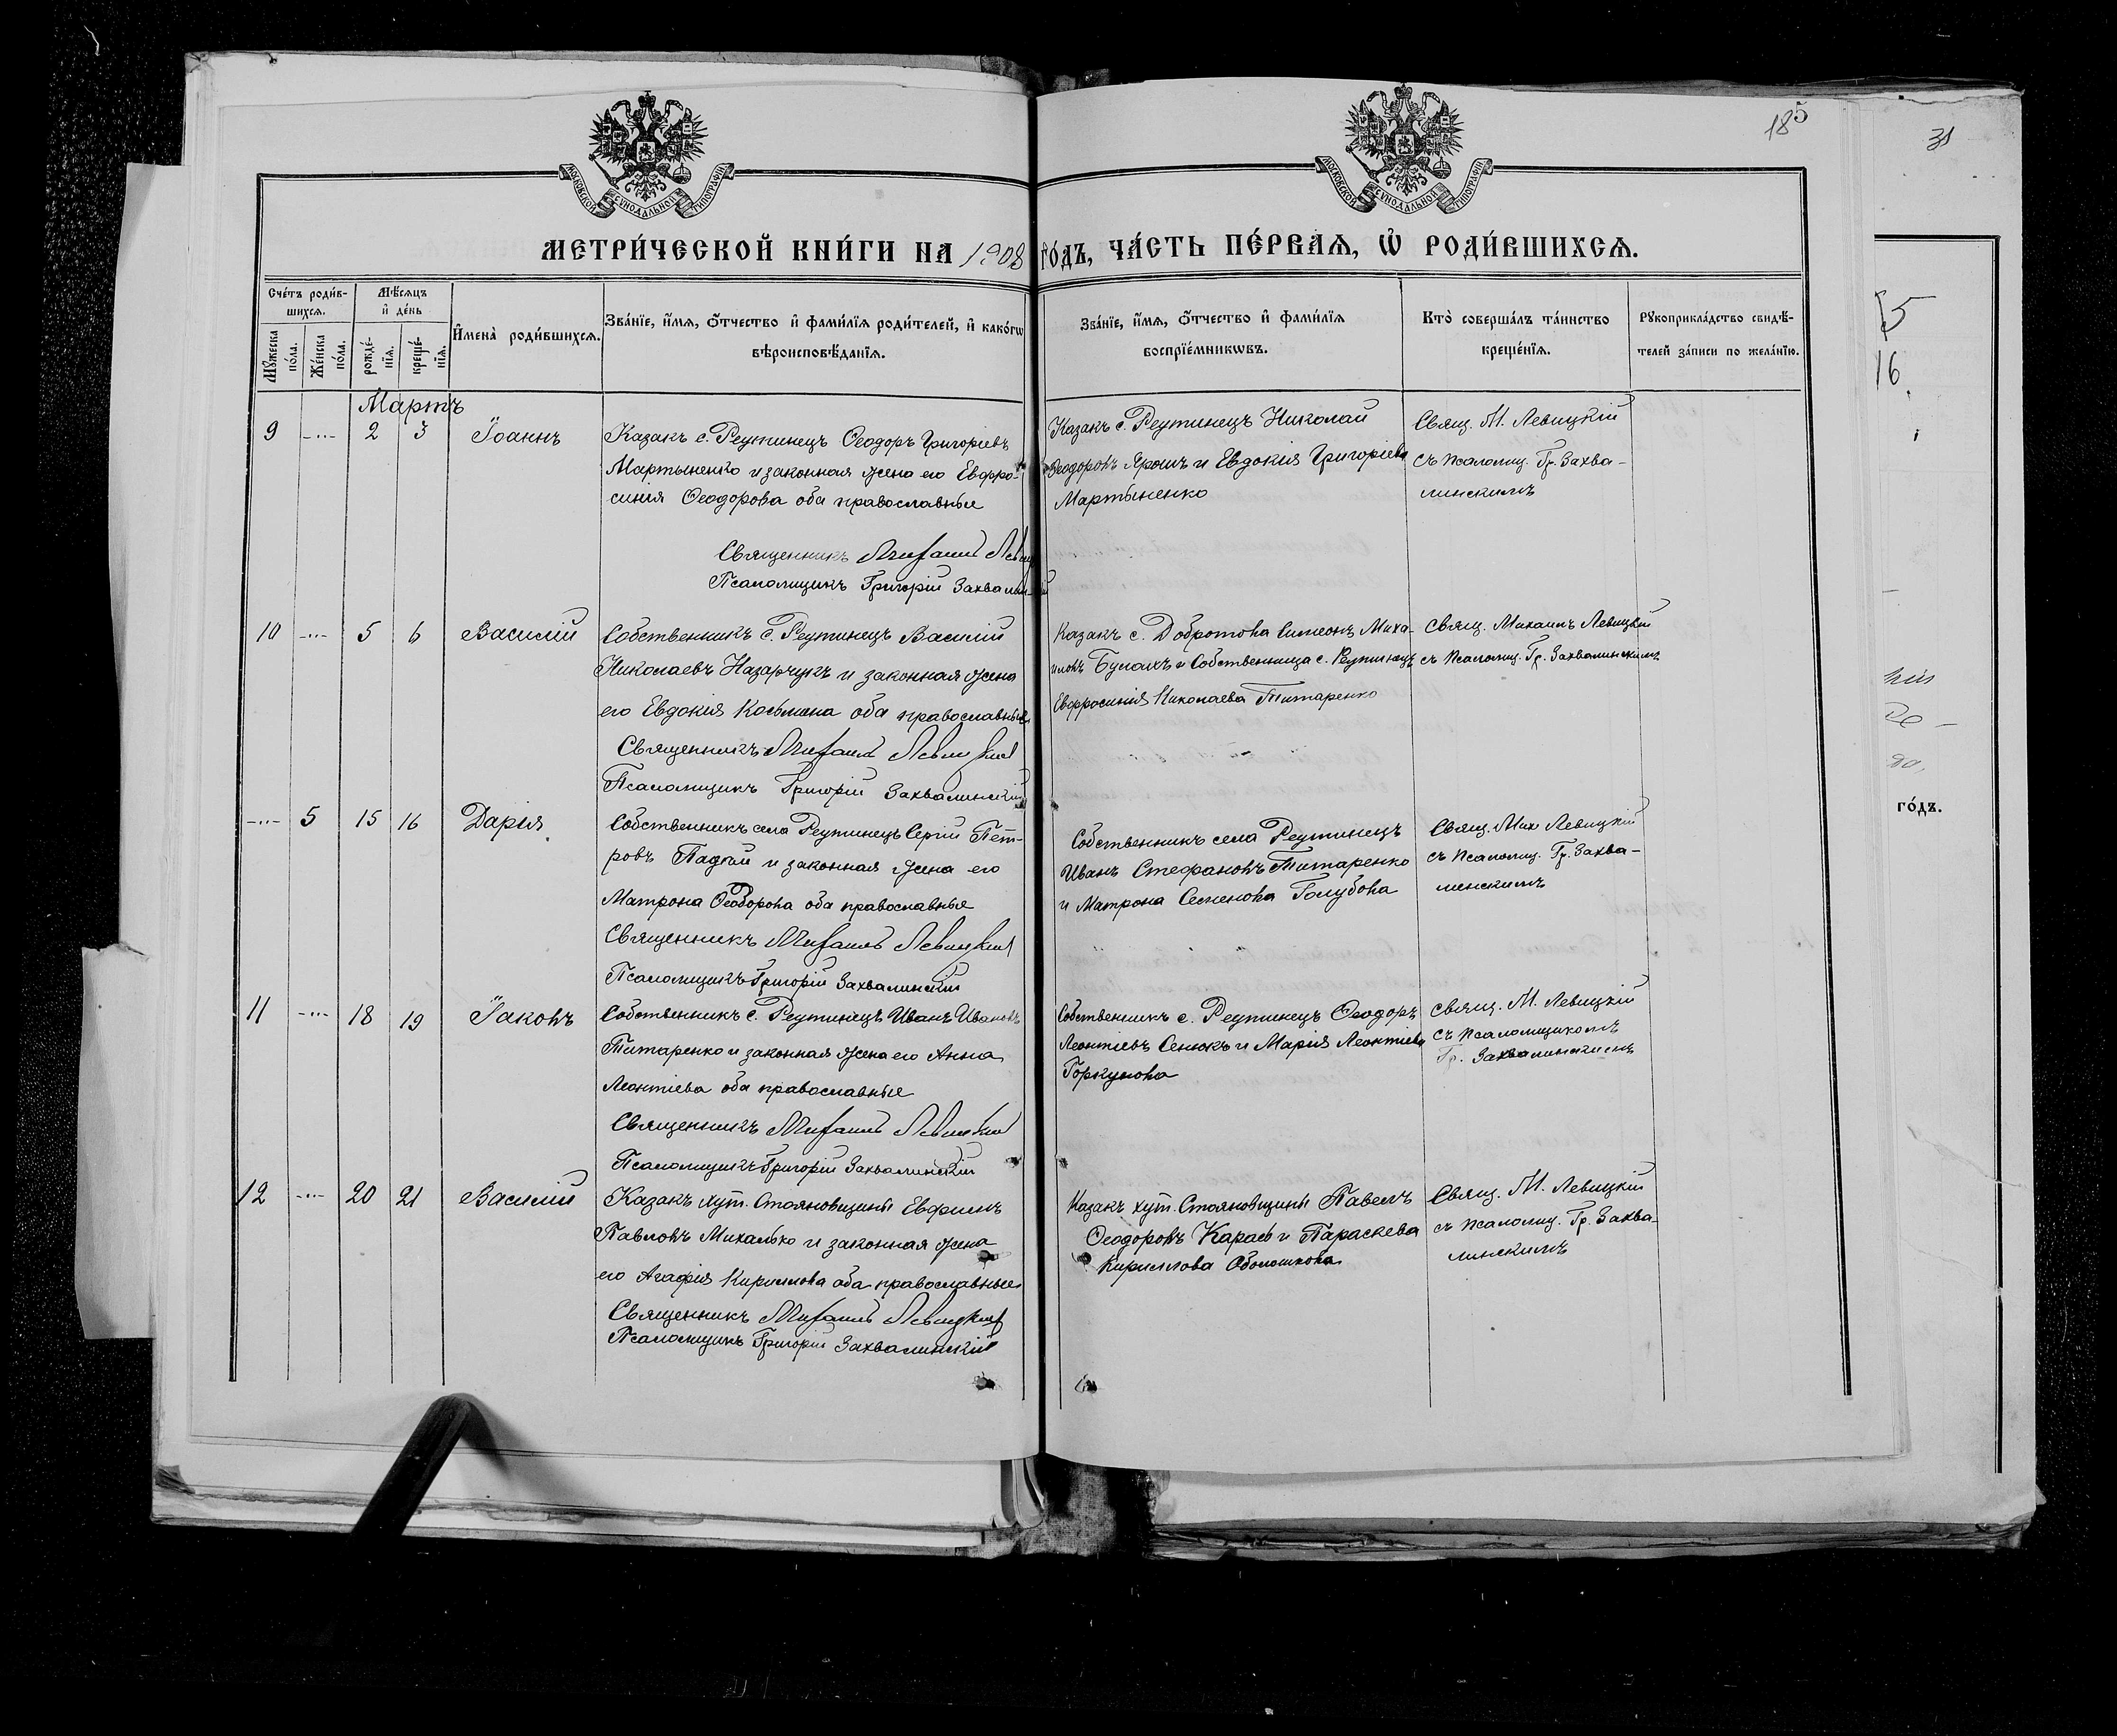 МОСКОВСКОЙ СѴНОДАЛЬНОЙ ТИПОГРАФІИ
МОСКОВСКОЙ СѴНОДАЛЬНОЙ ТИПОГРАФІИ
185
31
МЕТРИ́ЧЕСКОЙ КНИ́ГИ НА 1908 ГО́ДЪ, ЧА́СТЬ ПЕ́РВАѦ, Ѡ҆ РОДИ́ВШИХСѦ.
Сче́тъ роди́в-
шихсѧ.
Мꙋ́жеска
по́ла.
Же́нска
по́ла.
Мѣ́сѧцъ
и҆ де́нь
рожде́-
нїѧ.
креще́-
нїѧ.
И҆мена̀ роди́вшихсѧ.
Зва́нїе, и҆́мѧ, ѻ҆́тчество и҆ фами́лїѧ роди́телей, и҆ како́гѡ
вѣроисповѣ́данїѧ.
Зва́нїе, и҆́мѧ, ѻ҆́тчество и҆ фами́лїѧ
воспрїе́мникѡвъ.
Кто̀ соверша́лъ та́инство
креще́нїѧ.
Рꙋкоприкла́дство свидѣ́-
телей за́писи по жела́нїю.
Мартъ
9 -…- 2 3 Іоаннъ
Казакъ с. Реутинецъ Ѳеодоръ Григоріевъ
Мартыненко и законная жена его Евфро-
синія Ѳеодорова оба православные
Священникъ Михаилъ
Псаломщикъ Григорій Захвалинскій
Казакъ с. Реутинецъ Николай
Ѳеодоровъ Ярошъ и Евдокія Григоріева
Мартыненко
Свящ. М. Левицкій
съ псаломщ. Гр. Захва-
линскимъ
10 -…- 5 6 Василій
Собственникъ с. Реутинецъ Василій
Николаевъ Назарчукъ и законная жена
его Евдокія Косьмина оба православные
Священникъ Михаилъ Левицкій
Псаломщикъ Григорій Захвалинскій
Казакъ с. Добротова Симеонъ Миха-
иловъ и Собственница с. Реутинецъ
Евфросинія Николаева Титаренко
Свящ. Михаилъ Левицкій
съ Псаломщ. Гр. Захвалинскимъ
-…- 5 15 16 Дарія
Собственникъ села Реутинецъ Сергій Пет-
ровъ Падкій и законная жена его
Матрона Ѳеодорова оба православные
Священникъ Михаилъ Левицкій
Псаломщикъ Григорій Захвалинскій
Собственникъ села Реутинецъ
Иванъ Стефановъ Титаренко
и Матрона Семенова Голубова
Свящ. Мих Левицкій
съ Псаломщ. Гр. Захва-
линскимъ
11 -…- 18 19 Іаковъ
Собственникъ с. Реутинецъ Иванъ Ивановъ
Титаренко и законная жена его Анна
Леонтіева оба православные
Священникъ Михаилъ Левицкій
Псаломщикъ Григорій Захвалинскій
Собственникъ с. Реутинецъ Ѳеодоръ
Леонтіевъ Сенюкъ и Марія Леонтіева
Горкунова
Свящ. М. Левицкій
съ Псаломщикомъ
Гр. Захвалинскимъ
12 -…- 20 21 Василій
Казакъ хут. Стояновщины Евфимъ
Павловъ Михалько и законная жена
его Агафія Кириллова оба православные
Священникъ Михаилъ Левицкій
Псаломщикъ Григорій Захвалинскій
Казакъ хут. Стояновщины Павелъ
Ѳеодоровъ Карась и Параскева
Кириллова Оболонкова
Свящ. М. Левицкій
съ Псаломщ. Гр. Захва-
линскимъ
15
16.
го́дъ.